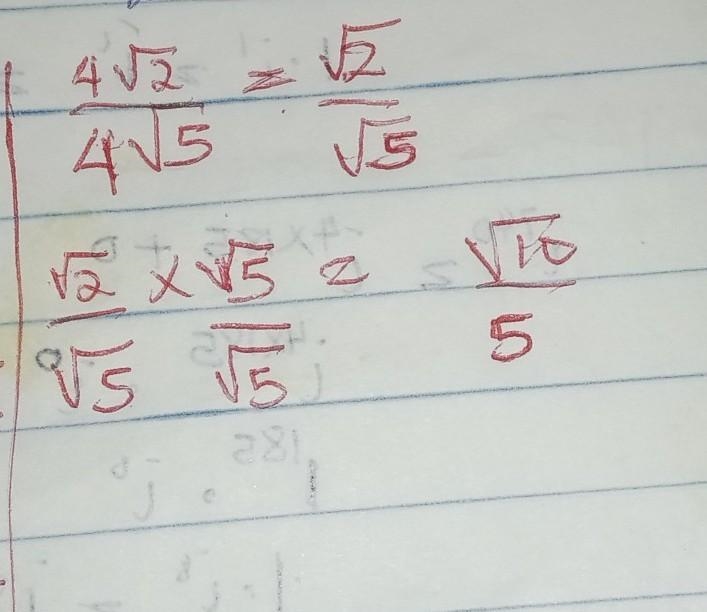 4√2/4√5 = √2/√5
√2/√5 × √5/√5 = √10/5